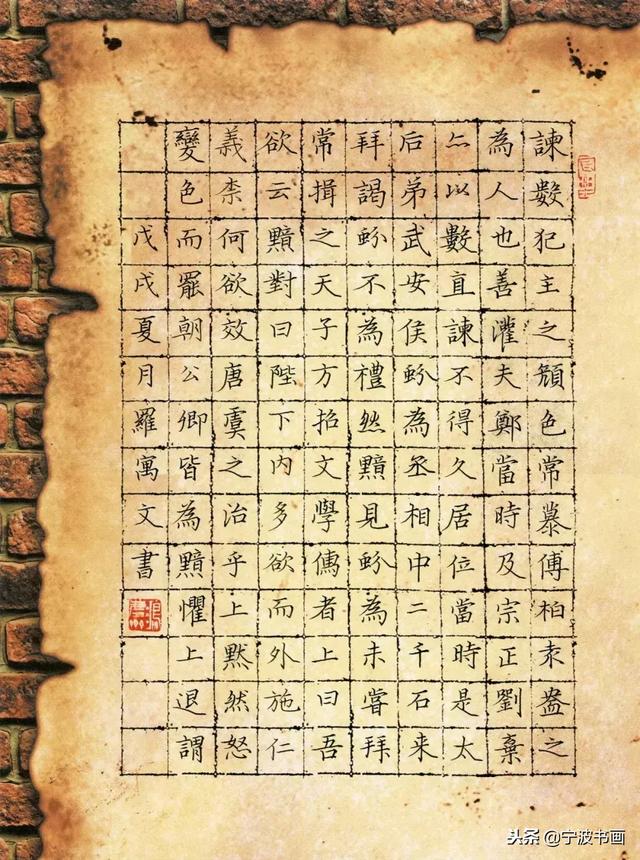 諫數犯主之顏色常慕傅柏袁盎之
為人也善灌夫鄭當時及宗正劉棄
亦以數直諫不得久居位當時是太
后弟武安侯蚡為丞相中二千石来
拜謁蚡不為禮然黯見蚡為未嘗拜
常揖之天子方招文學儒者上曰吾
欲云黯對曰陛下内多欲而外施仁
義柰何欲效唐虞之治乎上默然怒
變色而罷朝公卿皆為黯懼上退謂
戊戌夏月羅寓文書
头条 @宁波书画